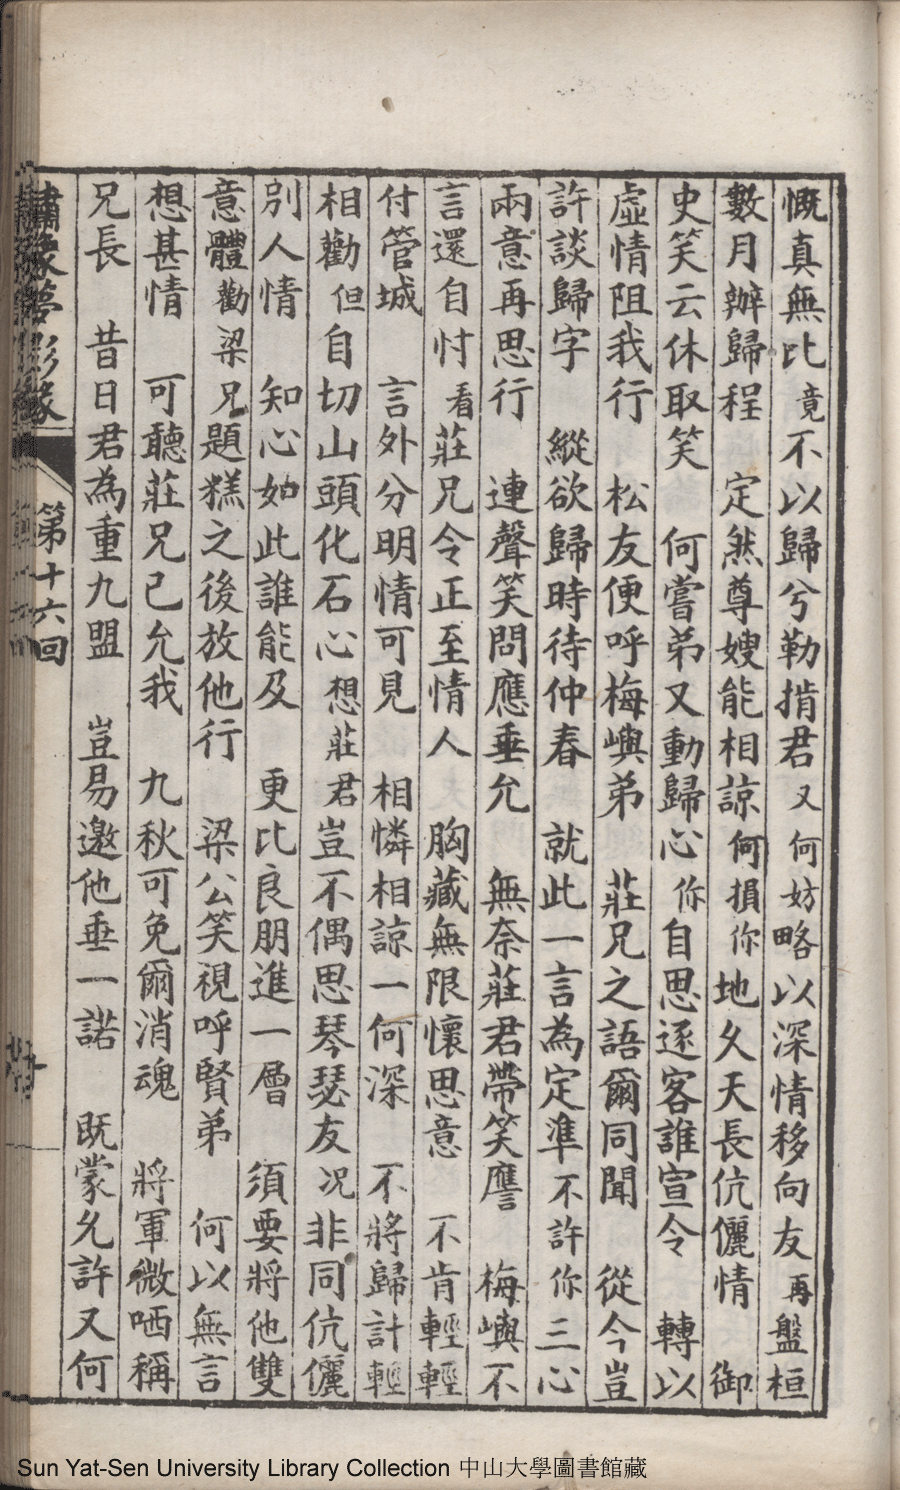 慨真無比竟不以歸兮勒揹君又何妨略以深情移向友再盤桓
數月辦歸程　定然尊嫂能相諒何損你地久天長伉儷情　御
史笑云休取笑　何嘗弟又動歸心你自思逐客誰宣令　轉以
虛情阻我行　松友便呼梅嶼弟　莊兄之語爾同聞　從今豈
許談歸字　縱欲歸時待仲春　就此一言為定準不許你三心
兩意再思行　連聲笑問應垂允　無奈莊君帶笑譍　梅嶼不
言還自忖看莊兄令正至情人　胸藏無限懷思意　不肯輕輕
付管城　言外分明情可見　相憐相諒一何深　不將歸計輕
相勸但自切山頭化石心想莊君豈不偶思琴瑟友况非同伉儷
別人情　知心如此誰能及　更比良朋進一層　須要將他雙
意體勸梁兄題糕之後放他行　梁公笑視呼賢弟　何以無言
想甚情　可聽莊兄已允我　九秋可免爾消魂　將軍微哂稱
兄長　昔日君為重九盟　豈易邀他垂一諾　既蒙允許又何
繡像夢影緣
第十六回
Sun Yat-Sen University Library Collection 中山大學圖書館藏